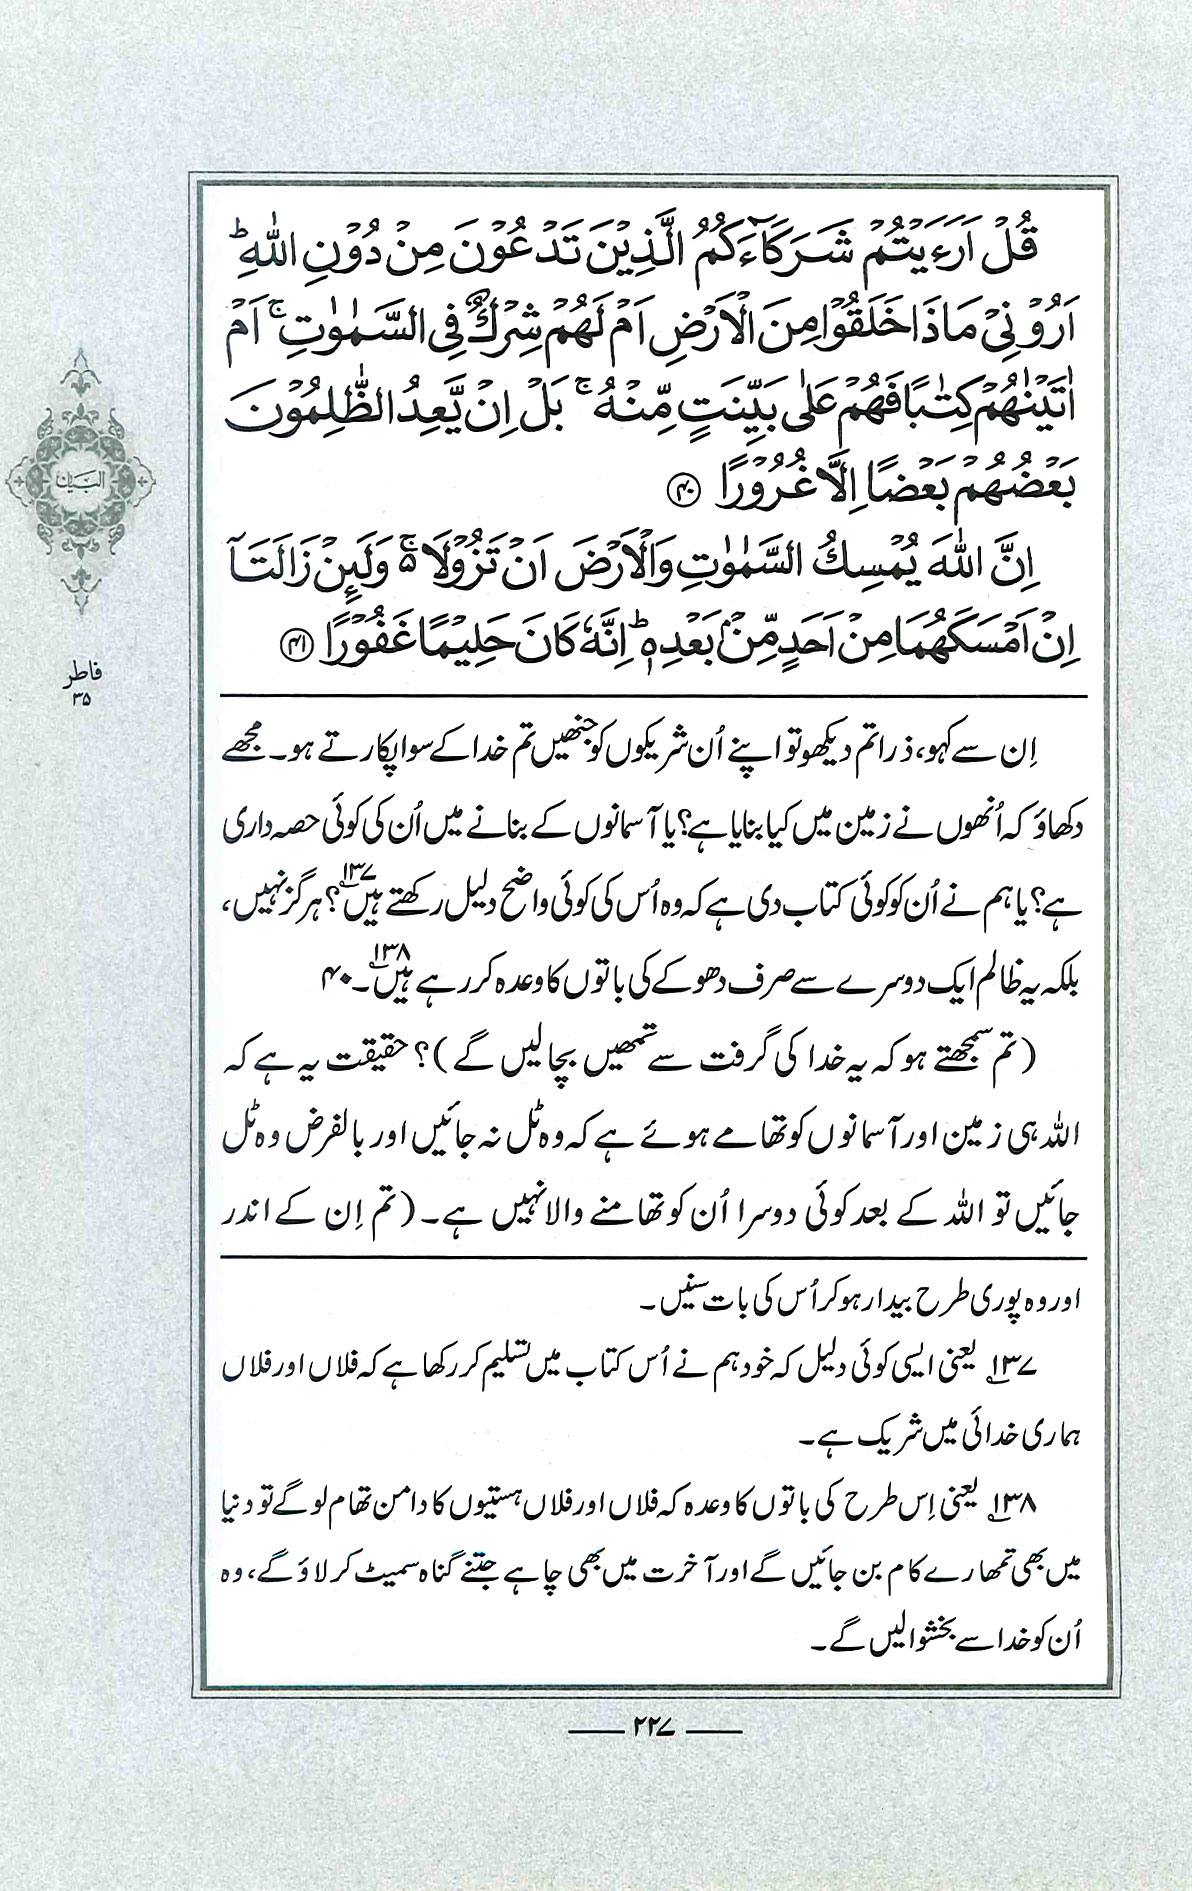 قُلْ اَرَءَيْتُمْ شُرَكَآءَكُمُ الَّذِيْنَ تَدْعُوْنَ مِنْ دُوْنِ اللّٰهِ ؕ
اَرُوْنِيْ مَاذَا خَلَقُوْا مِنَ الْاَرْضِ اَمْ لَهُمْ شِرْكٌ فِي السَّمٰوٰتِ ۚ اَمْ
اٰتَيْنٰهُمْ كِتٰبًا فَهُمْ عَلٰى بَيِّنَتٍ مِّنْهُ ۚ بَلْ اِنْ يَّعِدُ الظّٰلِمُوْنَ
بَعْضُهُمْ بَعْضًا اِلَّا غُرُوْرًا ﴿۴۰﴾
اِنَّ اللّٰهَ يُمْسِكُ السَّمٰوٰتِ وَالْاَرْضَ اَنْ تَزُوْلَا ۚ۬ وَلَئِنْ زَالَتَاۤ
اِنْ اَمْسَكَهُمَا مِنْ اَحَدٍ مِّنْۢ بَعْدِهٖ ؕ اِنَّهٗ كَانَ حَلِيْمًا غَفُوْرًا ﴿۴۱﴾
البیان
فاطر
۳۵
اِن سے کہو، ذرا تم دیکھو تو اپنے اُن شریکوں کو جنھیں تم خدا کے سوا پکارتے ہو۔ مجھے
دکھاؤ کہ اُنھوں نے زمین میں کیا بنایا ہے؟ یا آسمانوں کے بنانے میں اُن کی کوئی حصہ داری
ہے؟ یا ہم نے اُن کو کوئی کتاب دی ہے کہ وہ اُس کی کوئی واضح دلیل رکھتے ہیں۱۳۷؟ ہرگز نہیں،
بلکہ یہ ظالم ایک دوسرے سے صرف دھوکے کی باتوں کا وعدہ کر رہے ہیں۱۳۸۔ ۴۰
(تم سمجھتے ہو کہ یہ خدا کی گرفت سے تمھیں بچا لیں گے)؟ حقیقت یہ ہے کہ
اللہ ہی زمین اور آسمانوں کو تھامے ہوئے ہے کہ وہ ٹل نہ جائیں اور بالفرض وہ ٹل
جائیں تو اللہ کے بعد کوئی دوسرا اُن کو تھامنے والا نہیں ہے۔ (تم اِن کے اندر
اور وہ پوری طرح بیدار ہو کر اُس کی بات سنیں۔
۱۳۷ یعنی ایسی کوئی دلیل کہ خود ہم نے اُس کتاب میں تسلیم کر رکھا ہے کہ فلاں اور فلاں
ہماری خدائی میں شریک ہے۔
۱۳۸ یعنی اِس طرح کی باتوں کا وعدہ کہ فلاں اور فلاں ہستیوں کا دامن تھام لو گے تو دنیا
میں بھی تمھارے کام بن جائیں گے اور آخرت میں بھی چاہے جتنے گناہ سمیٹ کر لاؤ گے، وہ
اُن کو خدا سے بخشوا لیں گے۔
۲۲۷